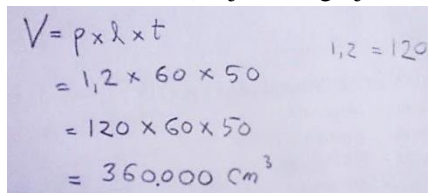 V = p x l x t
1,2 = 120
= 1,2 x 60 x 50
= 120 x 60 x 50
= 360.000 cm³